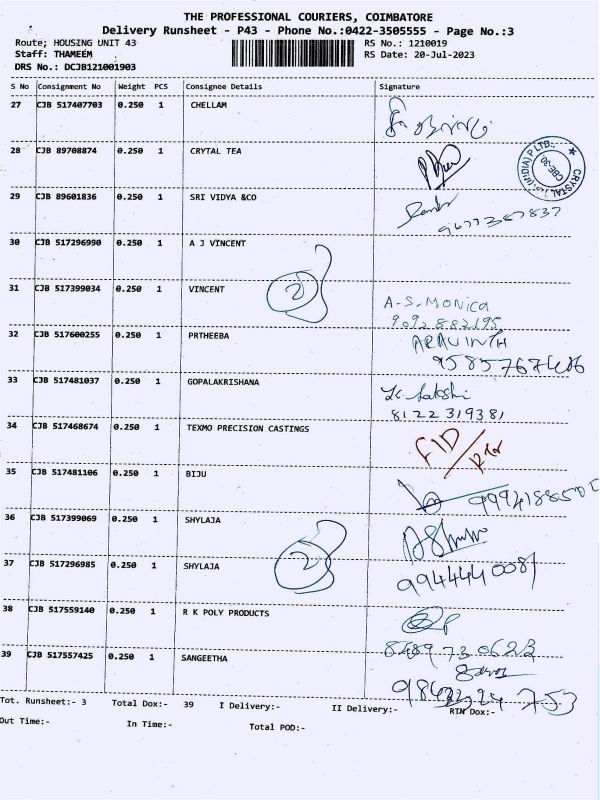 THE PROFESSIONAL COURIERS, COIMBATORE
Delivery Runsheet - P43 - Phone No.:0422-3505555 - Page No.:3
Route; HOUSING UNIT 43 RS No.: 1210019
Staff: THAMEEM RS Date: 20-Jul-2023
DRS No.: DCJB121001903
S No Consignment No Weight PCS Consignee Details Signature
27 CJB 517407703 0.250 1 CHELLAM
28 CJB 89708874 0.250 1 CRYTAL TEA
CRYSTAL (INDIA) P LTD.
29 CJB 89601836 0.250 1 SRI VIDYA &CO
30 CJB 517296990 0.250 1 A J VINCENT
2
31 CJB 517399034 0.250 1 VINCENT A.S. MONICA
9092883195
32 CJB 517600255 0.250 1 PRTHEEBA ARAVINTH
33 CJB 517481037 0.250 1 GOPALAKRISHANA
8122319381
34 CJB 517468674 0.250 1 TEXMO PRECISION CASTINGS
35 CJB 517481106 0.250 1 BIJU
36 CJB 517399069 0.250 1 SHYLAJA
2
37 CJB 517296985 0.250 1 SHYLAJA
9944440081
38 CJB 517559140 0.250 1 R K POLY PRODUCTS
39 CJB 517557425 0.250 1 SANGEETHA
Tot. Runsheet:- 3 Total Dox:- 39 I Delivery:- II Delivery:- RTN Dox:-
Out Time:- In Time:- Total POD:-